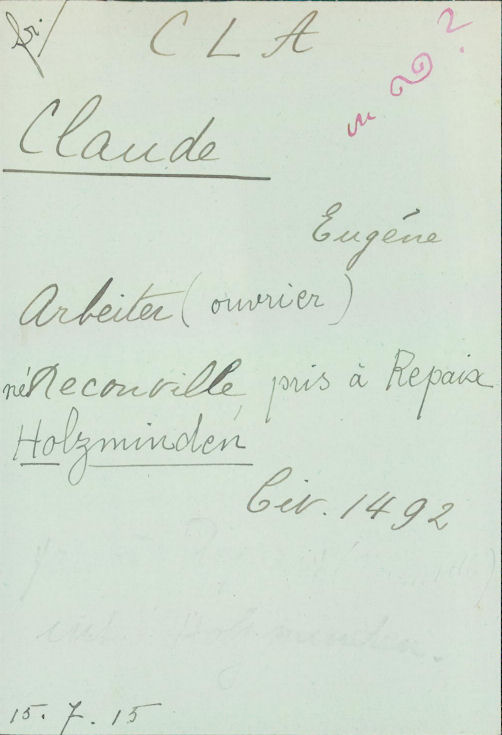 fr.
C L A
Claude
Eugène
Arbeiter (ouvrier)
né Reconville, pris à Repaix
Holzminden
Civ. 1492
15. 7. 15